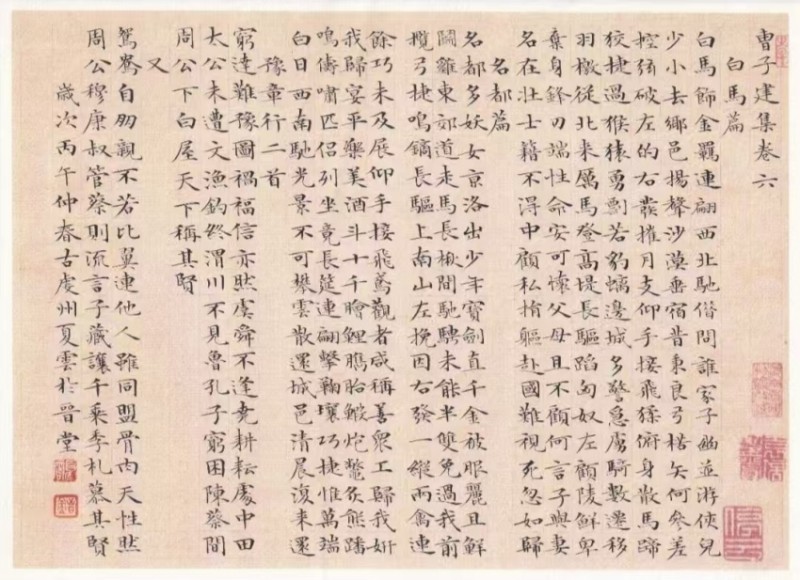 曹子建集卷六
白馬篇
白馬飾金羈連翩西北馳借問誰家子幽並游俠兒
少小去鄉邑揚聲沙漠垂宿昔秉良弓楛矢何參差
控弦破左的右發摧月支仰手接飛猱俯身散馬蹄
狡捷過猴猿勇剽若豹螭邊城多警急虜騎數遷移
羽檄從北來厲馬登高堤長驅蹈匈奴左顧陵鮮卑
棄身鋒刃端性命安可懷父母且不顧何言子與妻
名在壯士籍不得中顧私捐軀赴國難視死忽如歸
名都篇
名都多妖女京洛出少年寶劍直千金被服麗且鮮
鬭雞東郊道走馬長楸間馳騁未能半雙兔過我前
攬弓捷鳴鏑長驅上南山左挽因右發一縱兩禽連
餘巧未及展仰手接飛鳶觀者咸稱善眾工歸我妍
我歸宴平樂美酒斗十千膾鯉臇胎鰕炮鱉炙熊蹯
鳴儔嘯匹侶列坐竟長筵連翩擊鞠壤巧捷惟萬端
白日西南馳光景不可攀雲散還城邑清晨復來還
豫章行二首
窮達難豫圖禍福信亦然虞舜不逢堯耕耘處中田
太公未遭文漁釣終渭川不見魯孔子窮困陳蔡間
周公下白屋天下稱其賢
又
鴛鴦自朋親不若比翼連他人雖同盟骨肉天性然
周公穆康叔管蔡則流言子臧讓千乘季札慕其賢
歲次丙午仲春古虔州夏雲於晉堂